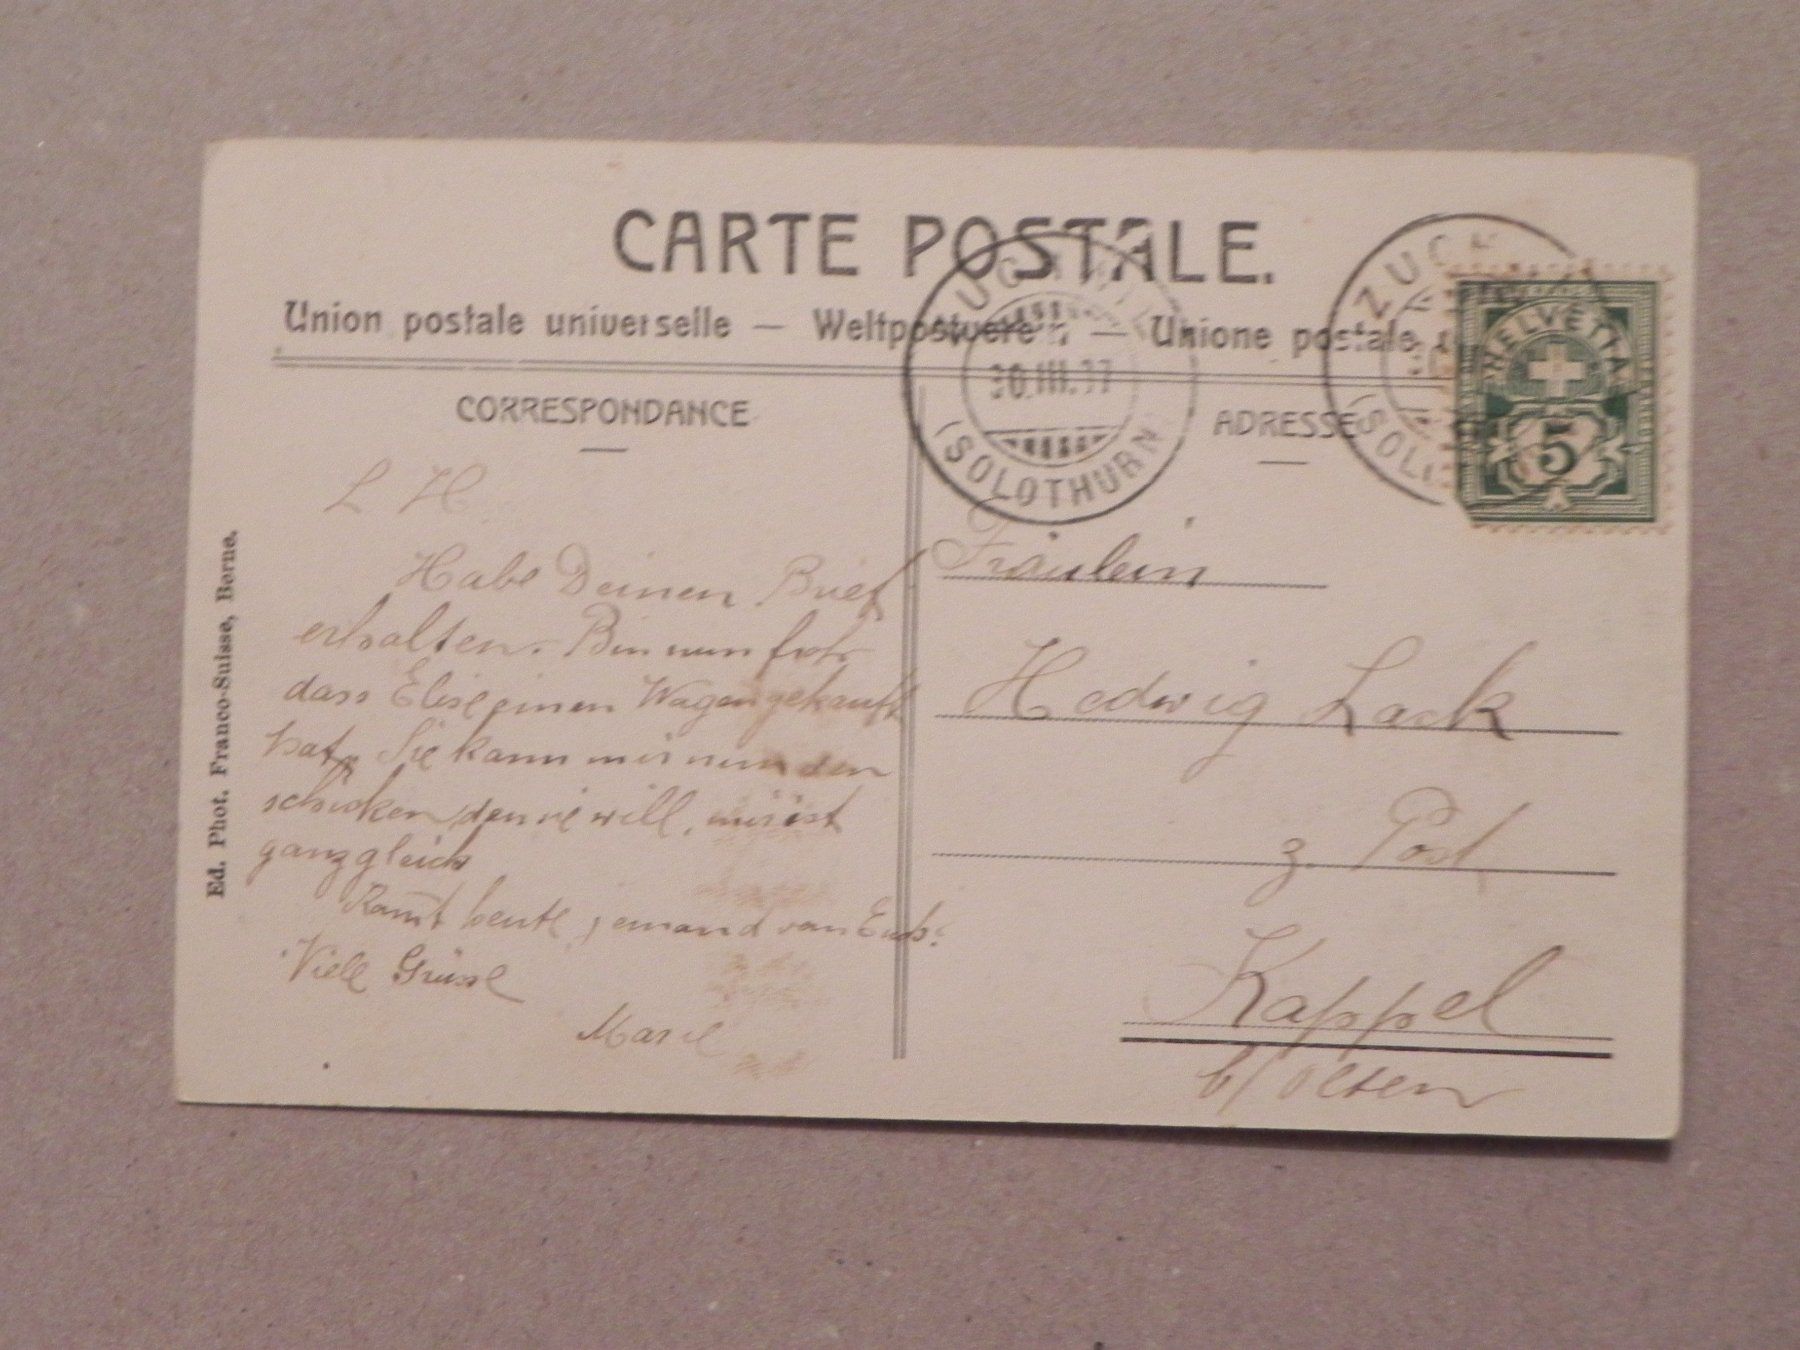 CARTE POSTALE.
Union postale universelle — Weltpostverein — Unione postale
CORRESPONDANCE
ADRESSE
ZUCHWIL
30.III.07
(SOLOTHURN)
ZUCH
(SOL
HELVETIA
5
L H
Habe Deinen Brief
erhalten. Bin nun froh
dass Elise einen Wagen gekauft
hat. Sie kann mir nun den
schicken, den sie will, mir ist
ganz gleich
Kommt heute jemand von Euch?
Viele Grüsse
Marie
Fräulein
Hedwig Lack
z. Post
Kappel
b/ Olten
Ed. Phot. Franco-Suisse, Berne.